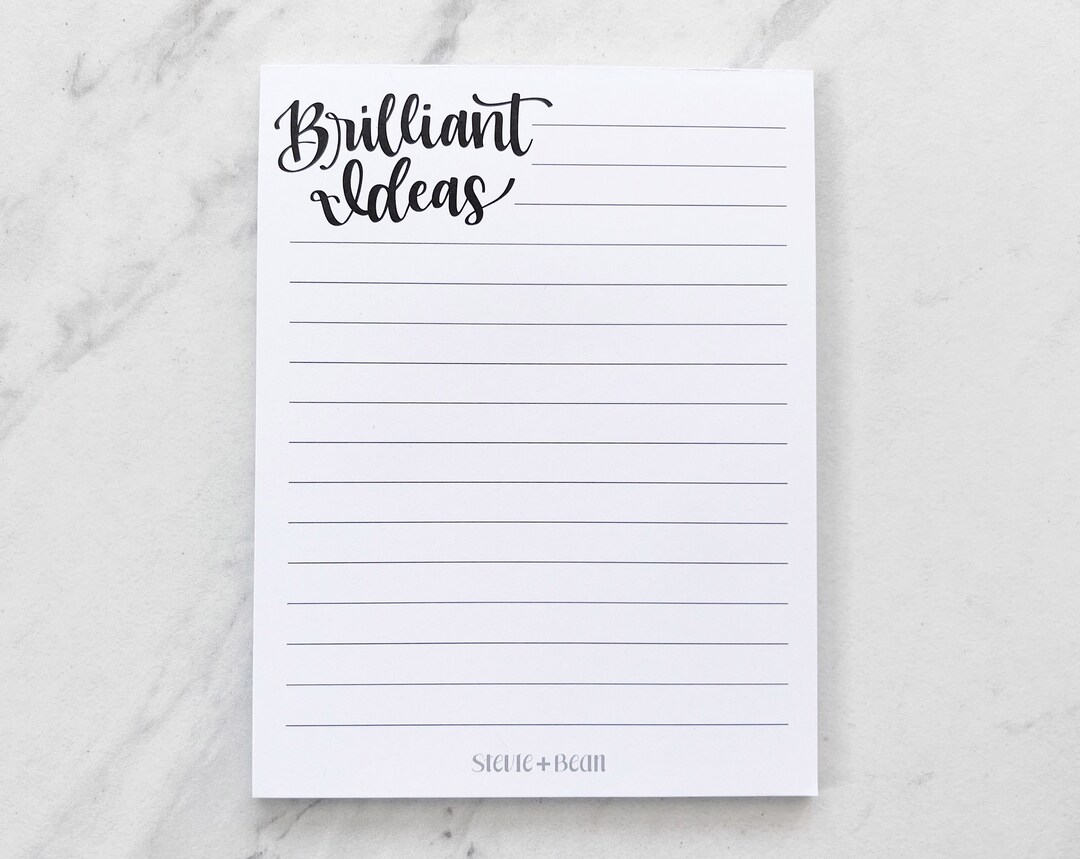 Brilliant
Ideas
Stevie + Bean